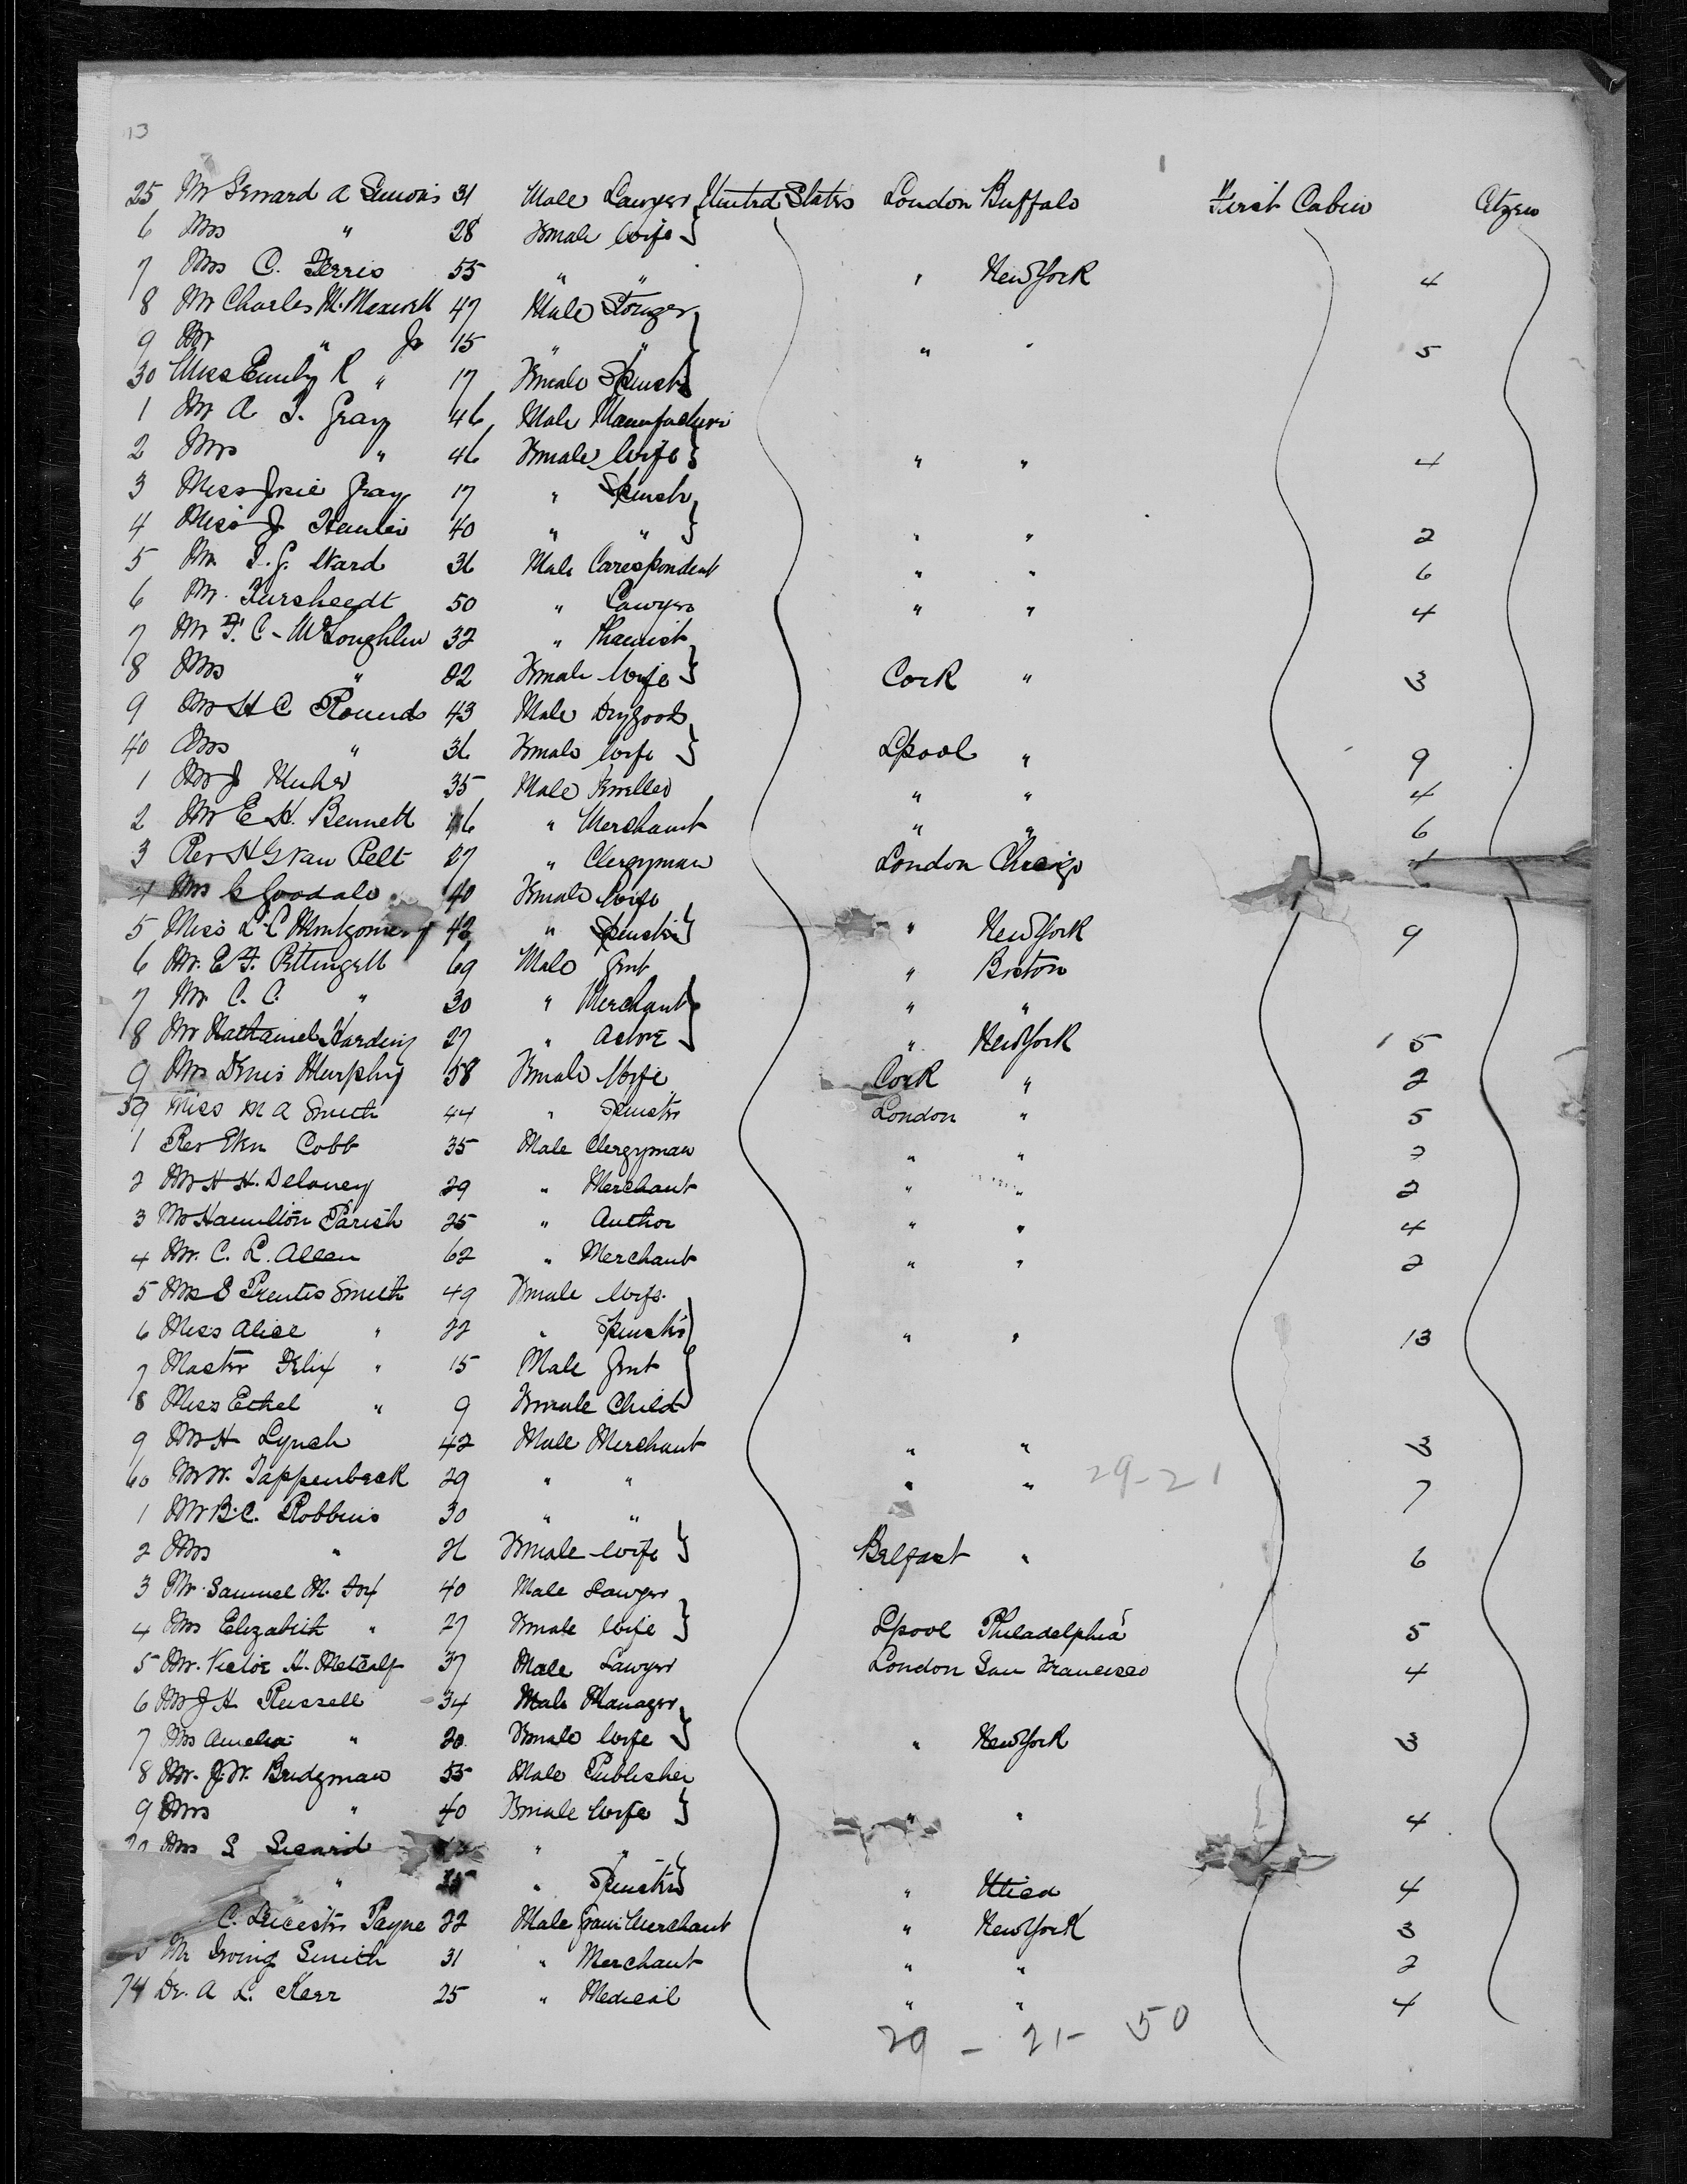 13
25 Mr Seward A Simons 31 Male Lawyer United States London Buffalo First Cabin Citizen
6 Mrs " 28 Female Wife }
7 Mrs C. Ferris 55 " " " New York 4
8 Mr Charles M. Maxwell 47 Male
9 Mr " Jr 15 " " " " 5
30 Miss Emily R " 17 Female Spinster
1 Mr A T. Gray 46 Male Manufacturer
2 Mrs " 46 Female Wife } " " 4
3 Miss Josie Gray 17 " Spinster
4 Miss J. 40 " " } " " 2
5 Mr. J. G. Ward 36 Male Correspondent " " 6
6 Mr. Kursheedt 50 " Lawyer " " 4
7 Mr F. C - McLoughlin 32 "
8 Mrs " 32 Female Wife } Cork " 3
9 Mr H C Rounds 43 Male Drygoods
40 Mrs " 36 Female Wife } Lpool " 9
1 Mr J Muhr 35 Male Jeweller " " 4
2 Mr E H. Bennett 46 " Merchant " " 6
3 Rev H G Van Pelt 27 " Clergyman London Chicago
4 Mrs C Goodale 40 Female Wife
5 Miss L. C Montgomery 42 " Spinster } " New York 9
6 Mr. E F. Pettingell 69 Male Gent " Boston
7 Mr C. C. " 30 " Merchant " "
8 Mr Nathaniel Harding 27 " Actor } " New York 5
9 Mrs Denis Murphy 58 Female Wife Cork " 2
59 Miss M A Smith 44 " Spinster London " 5
1 Rev Eben Cobb 35 Male Clergyman " " 2
2 Mr H H. Delaney 29 " Merchant " " 2
3 Mr Hamilton Parish 25 " Author " " 4
4 Mr. C. L. Allen 62 " Merchant " " 2
5 Mrs S Prentis Smith 49 Female Wife
6 Miss Alice " 22 " Spinster } " " 13
7 Master Felix " 15 Male Gent
8 Miss Ethel " 9 Female Child
9 Mr H Lynch 42 Male Merchant " " 3
60 Mr W. Tappenbeck 29 " " " " 29-21 7
1 Mr B. C. Robbins 30 " "
2 Mrs " 26 Female Wife } Belfast " 6
3 Mr. Samuel M. Fox 40 Male Lawyer
4 Mrs Elizabeth " 27 Female Wife } Lpool Philadelphia 5
5 Mr. Victor H. Metcalf 37 Male Lawyer London San Francisco 4
6 Mr J H Russell 34 Male Manager
7 Mrs Amelia " 20 Female Wife } " New York 3
8 Mr. J. W. Bridgman 55 Male Publisher
9 Mrs " 40 Female Wife } " " 4
70 Mrs S Sicard " "
" 35 " Spinster } " Utica 4
C. Leicester Payne 22 Male Grain Merchant " New York 3
Mr Irving Smith 31 " Merchant " " 2
74 Dr. A L. Kerr 25 " Medical " " 4
29 - 21 - 50